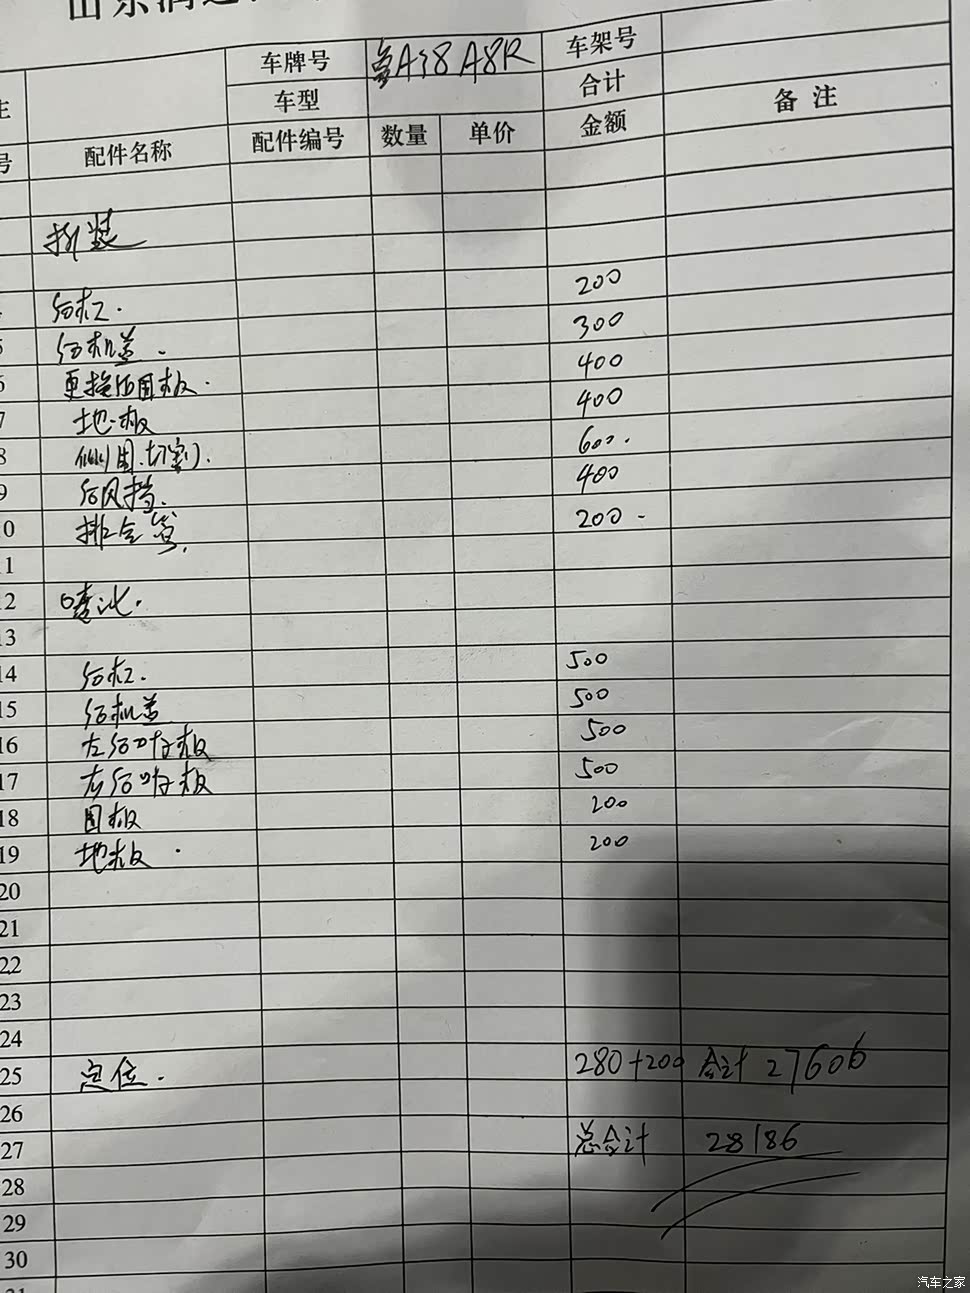 车牌号 车架号
车型 合计 备注
号 配件名称 配件编号 数量 单价 金额
拆装
后杠. 200
5 后机盖. 300
6 更换后围板. 400
7 地板 400
8 侧围.切割. 600.
9 后风挡. 400
10 排气管. 200.
11
12 喷漆.
13
14 后杠. 500
15 后机盖 500
16 左后叶子板 500
17 右后叶子板 500
18 围板 200
19 地板. 200
20
21
22
23
24
25 定位. 280+200 合计 27606
26
27 总合计 28186
28
29
30
汽车之家